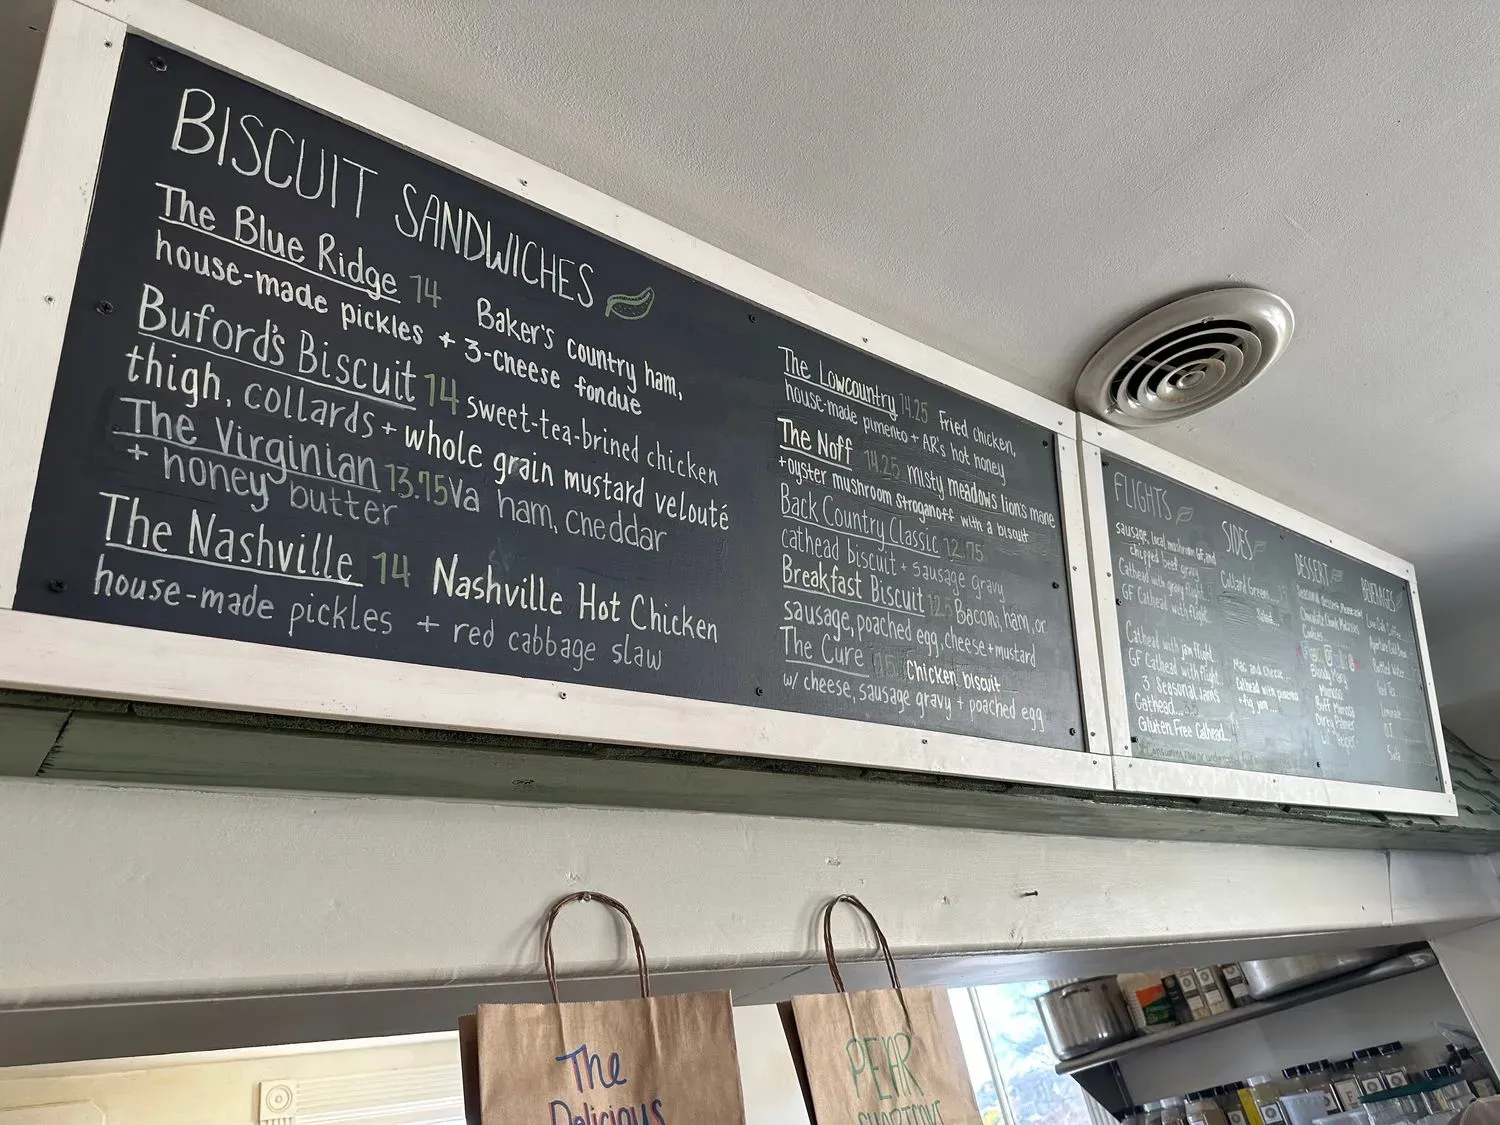 BISCUIT SANDWICHES
The Blue Ridge 14 Baker's country ham,
house-made pickles + 3-cheese fondue
Buford's Biscuit 14 sweet-tea-brined chicken
thigh, collards + whole grain mustard velouté
The Virginian 13.75 Va ham, cheddar
+ honey butter
The Nashville 14 Nashville Hot Chicken
house-made pickles + red cabbage slaw
The Lowcountry 14.25 Fried chicken,
house-made pimento + AR's hot honey
The Noff 14.25 misty meadows lion's mane
+ oyster mushroom stroganoff with a biscuit
Back Country Classic 12.75
cathead biscuit + sausage gravy
Breakfast Biscuit 12.5 Bacon, ham, or
sausage, poached egg, cheese + mustard
The Cure Chicken biscuit
w/ cheese, sausage gravy + poached egg
FLIGHTS
sausage, local mushroom GF, and
chipped beef gravy
Cathead with gravy flight
GF Cathead with flight..
Cathead with jam flight
GF Cathead with flight..
3 Seasonal Jams
Cathead...
Gluten Free Cathead..
SIDES
Collard Greens
Salad
Mac and Cheese
Cathead with
+ fig jam...
DESSERT
Cookies
Bloody Mary
Mimosa
Buff Mimosa
Dirty Palmer
BEVERAGES
Bottled Water
Iced Tea
Lemonade
O.J.
Soda
The
Delicious
PEAR